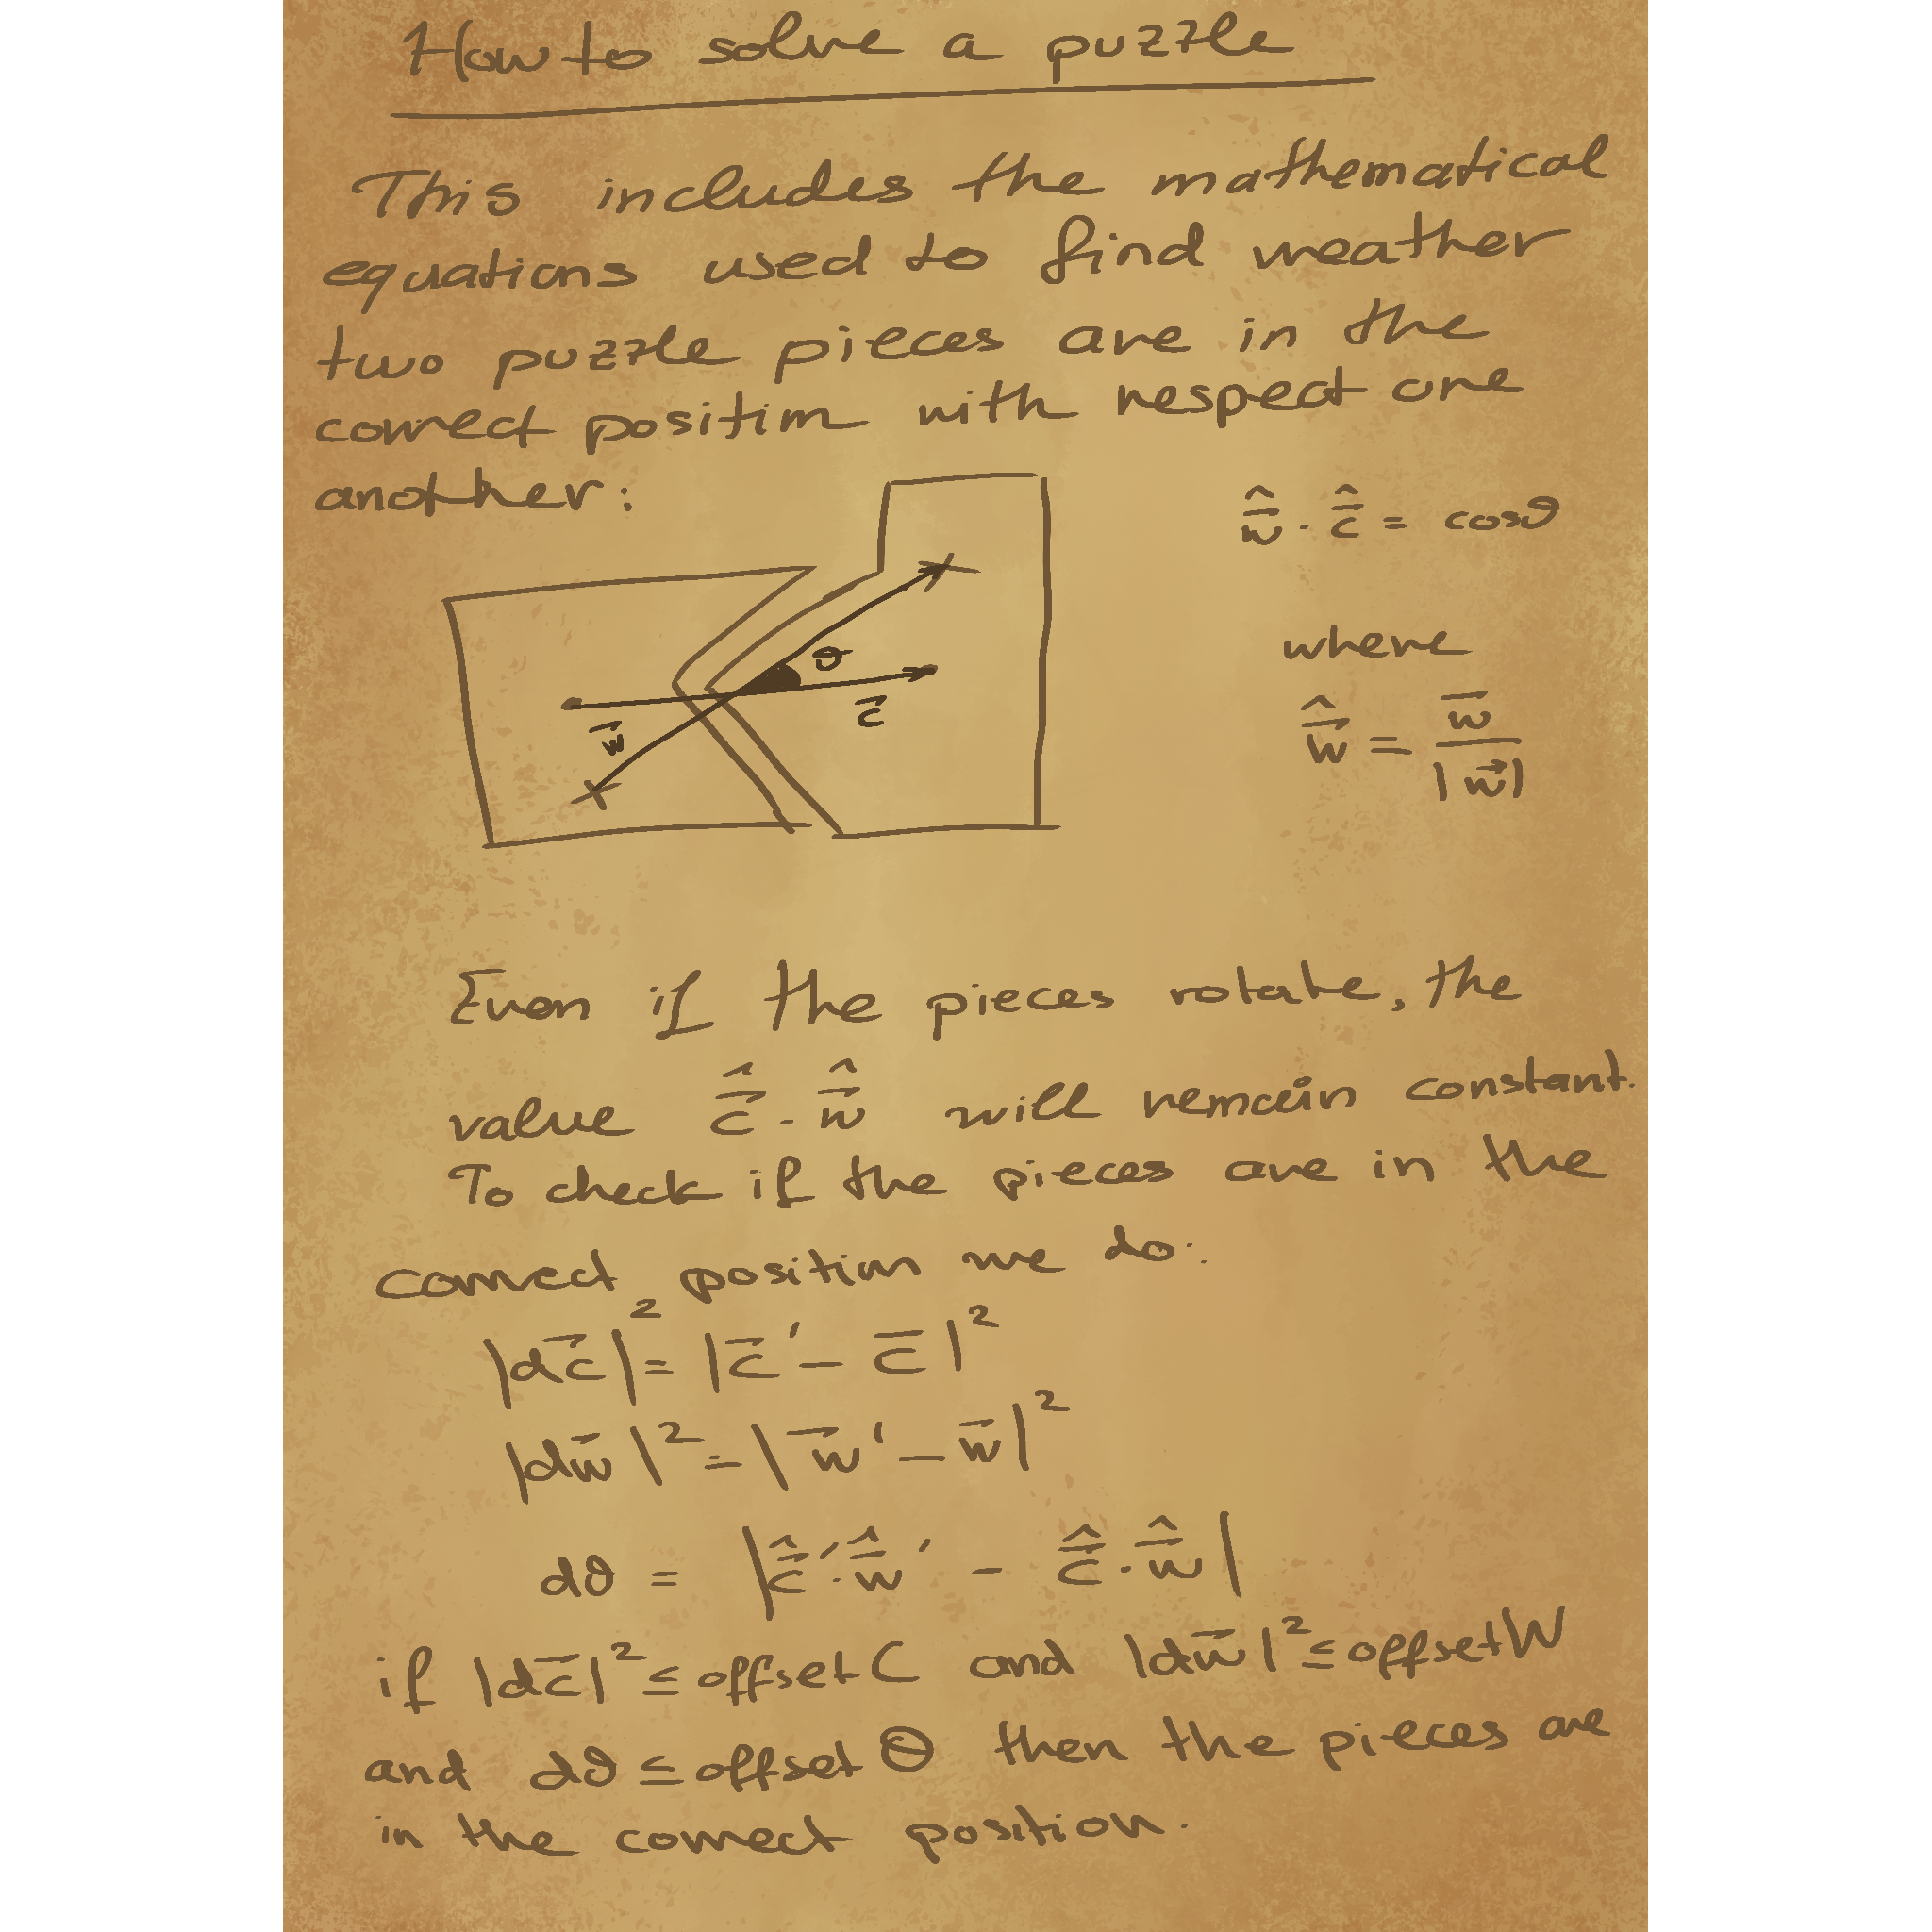 How to solve a puzzle
This includes the mathematical
equations used to find weather
two puzzle pieces are in the
correct position with respect one
another:
ŵ⃗ · ĉ⃗ = cosϑ
where
ŵ⃗ = w⃗ / |w⃗|
ϑ
c⃗
w⃗
Even if the pieces rotate, the
value ĉ⃗ · ŵ⃗ will remain constant.
To check if the pieces are in the
correct position we do:
|dc⃗|² = |c⃗' - c⃗|²
|dw⃗|² = |w⃗' - w⃗|²
dϑ = |ĉ⃗' · ŵ⃗' - ĉ⃗ · ŵ⃗|
if |dc⃗|² ≤ offset C and |dw⃗|² ≤ offset W
and dϑ ≤ offset Θ then the pieces are
in the correct position.